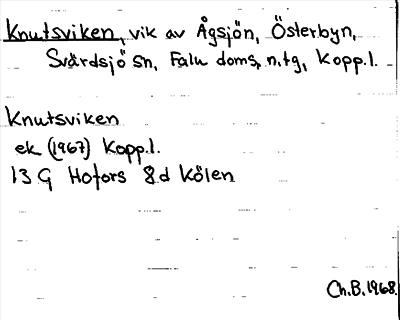 Knutsviken, vik av Ågsjön, Österbyn,
Svärdsjö sn, Falu doms. n. tg, Kopp.l.
Knutsviken
ek (1967) Kopp.l.
13 G Hofors 8 d Kölen
Ch.B. 1968.